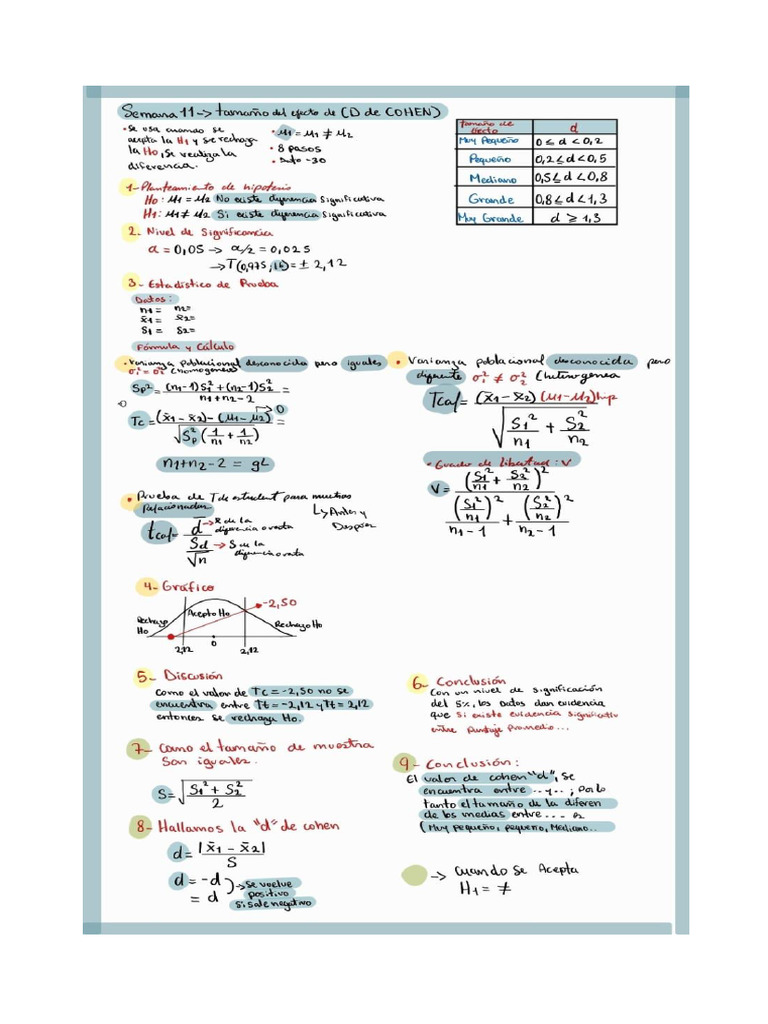 Semana 11 -> tamaño del efecto de (D de COHEN)
• Se usa cuando se
acepta la H1 y se rechaza
la Ho, se realiza la
diferencia.
• μ1 = μ1 ≠ μ2
• 8 pasos
• Dato -30
Tamaño de efecto | d
Muy Pequeño | 0 ≤ d < 0,2
Pequeño | 0,2 ≤ d < 0,5
Mediano | 0,5 ≤ d < 0,8
Grande | 0,8 ≤ d < 1,3
Muy Grande | d ≥ 1,3
1- Planteamiento de hipotesis
Ho: μ1 = μ2 No existe diferencia significativa
H1: μ1 ≠ μ2 Si existe diferencia significativa
2- Nivel de Significancia
α = 0,05 → α/2 = 0,025
→ T(0,975; 16) = ± 2,12
3- Estadístico de Prueba
Datos:
n1 = n2=
x̄1 = x̄2=
S1 = S2=
Fórmula y Cálculo
• Varianza poblacional desconocida pero iguales
σ1² = σ2² (homogéneas
Sp² = (n1-1)S1² + (n2-1)S2² / n1+n2-2 =
Tc = (x̄1 - x̄2) - (μ1 - μ2) → 0 / √Sp² (1/n1 + 1/n2) =
n1+n2-2 = gL
• Varianza poblacional desconocida pero
diferente σ1² ≠ σ2² (heterogénea
Tcal = (x̄1 - x̄2) (μ1 - μ2)hip / √S1²/n1 + S2²/n2
• Grado de libertad: V
V = (S1²/n1 + S2²/n2)² / (S1²/n1)²/n1-1 + (S2²/n2)²/n2-1
• Prueba de T de student para muestras
Relacionadas
↳ Antes y
Despues
tcal = d̄ / Sd/√n
→ x̄ de la
diferencia o resta
→ S de la
diferencia o resta
4- Gráfico
-2,50
Rechazo
Ho
Acepto Ho
Rechazo Ho
2,12 0 2,12
5- Discusión
como el valor de Tc = -2,50 no se
encuentra entre Tt = -2,12 y Tt = 2,12
entonces se rechaza Ho.
6- Conclusión
Con un nivel de significación
del 5%, los datos dan evidencia
que si existe evidencia significativ
entre puntaje promedio...
7- Como el tamaño de muestra
son iguales.
S = √S1² + S2² / 2
8- Hallamos la "d" de cohen
d = |x̄1 - x̄2| / S
d = -d
= d
→ Se vuelve
positivo
si sale negativo
9- Conclusión:
El valor de cohen "d", se
encuentra entre ... y ... ; Por lo
tanto el tamaño de la diferen
de los medias entre .... es
(Muy pequeño, pequeño, Mediano...
→ Cuando se Acepta
H1 = ≠